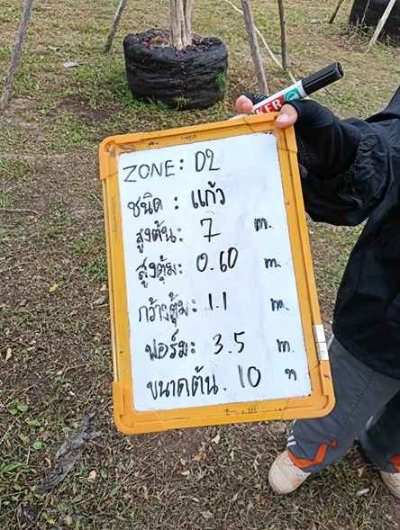 ZONE: D2
ชนิด : แก้ว
สูงต้น: 7 m.
สูงตุ้ม: 0.60 m.
กว้างตุ้ม: 1.1 m.
ฟอร์ม: 3.5 m.
ขนาดต้น. 10 "
KER